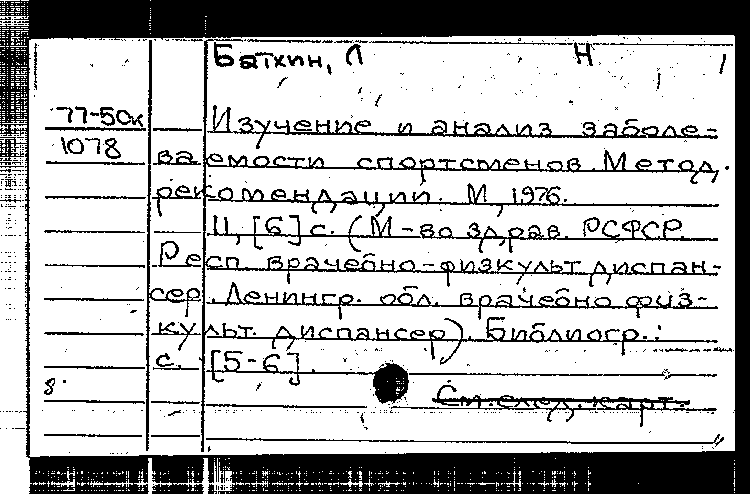 Баткин, Л Н
77-50к
1078
Изучение и анализ заболе=
ваемости спортсменов. Метод.
рекомендации. М, 1976.
11, [6] с. (М-во здрав. РСФСР.
Респ. врачебно-физкульт диспан-
сер. Ленингр. обл. врачебно физ-
культ. диспансер). Библиогр.:
с. [5-6].
8.
См. след. карт.